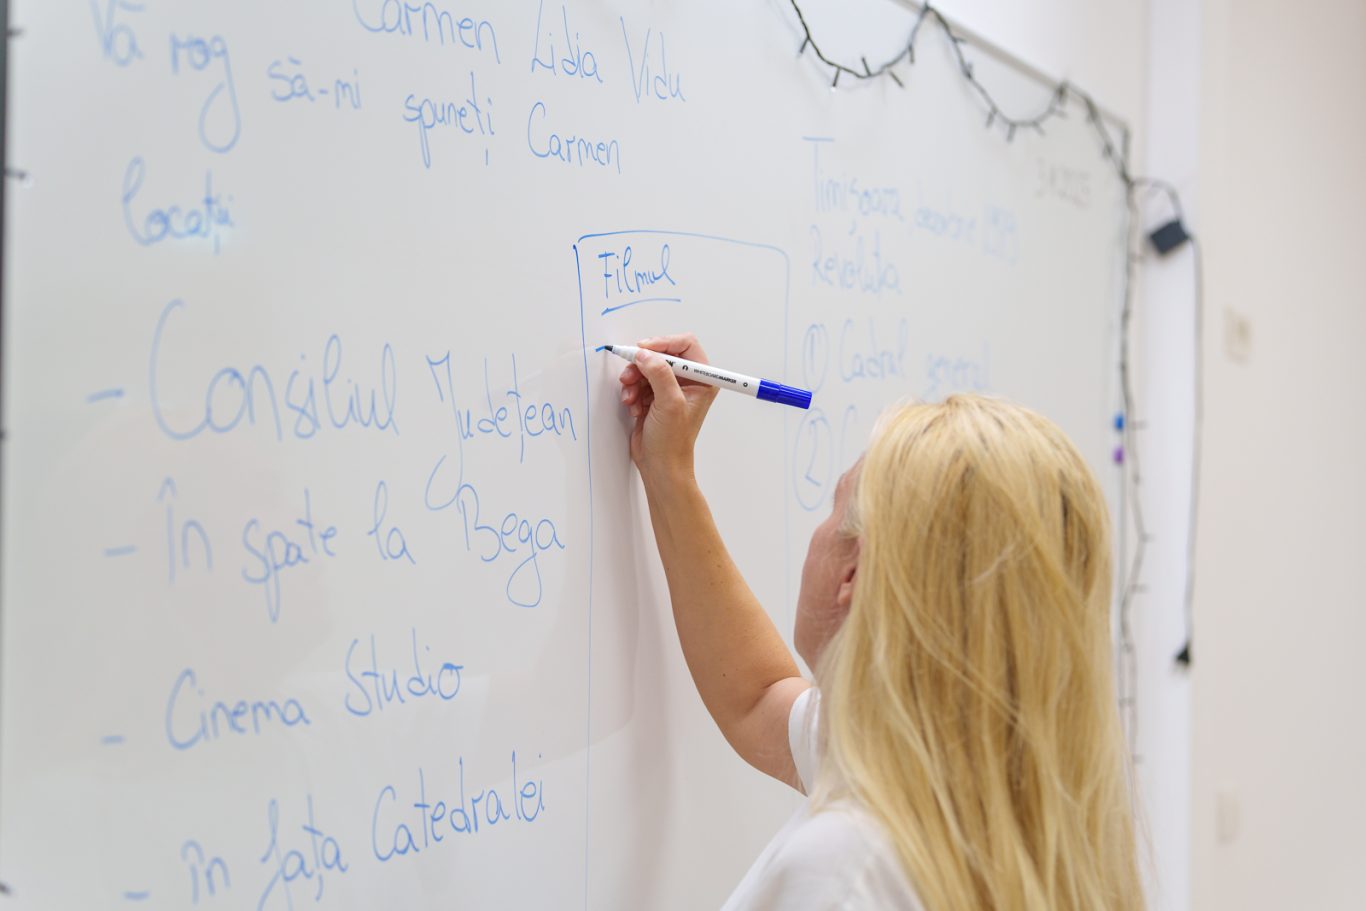 Carmen Lidia Vidu
Vă rog să-mi spuneți Carmen
locații
- Consiliul Județean
- în spate la Bega
- Cinema Studio
- în fața Catedralei
Filmul
-
Timișoara, decembrie 1989
Revoluția
① Cadrul general
②
WHITEBOARDMARKER